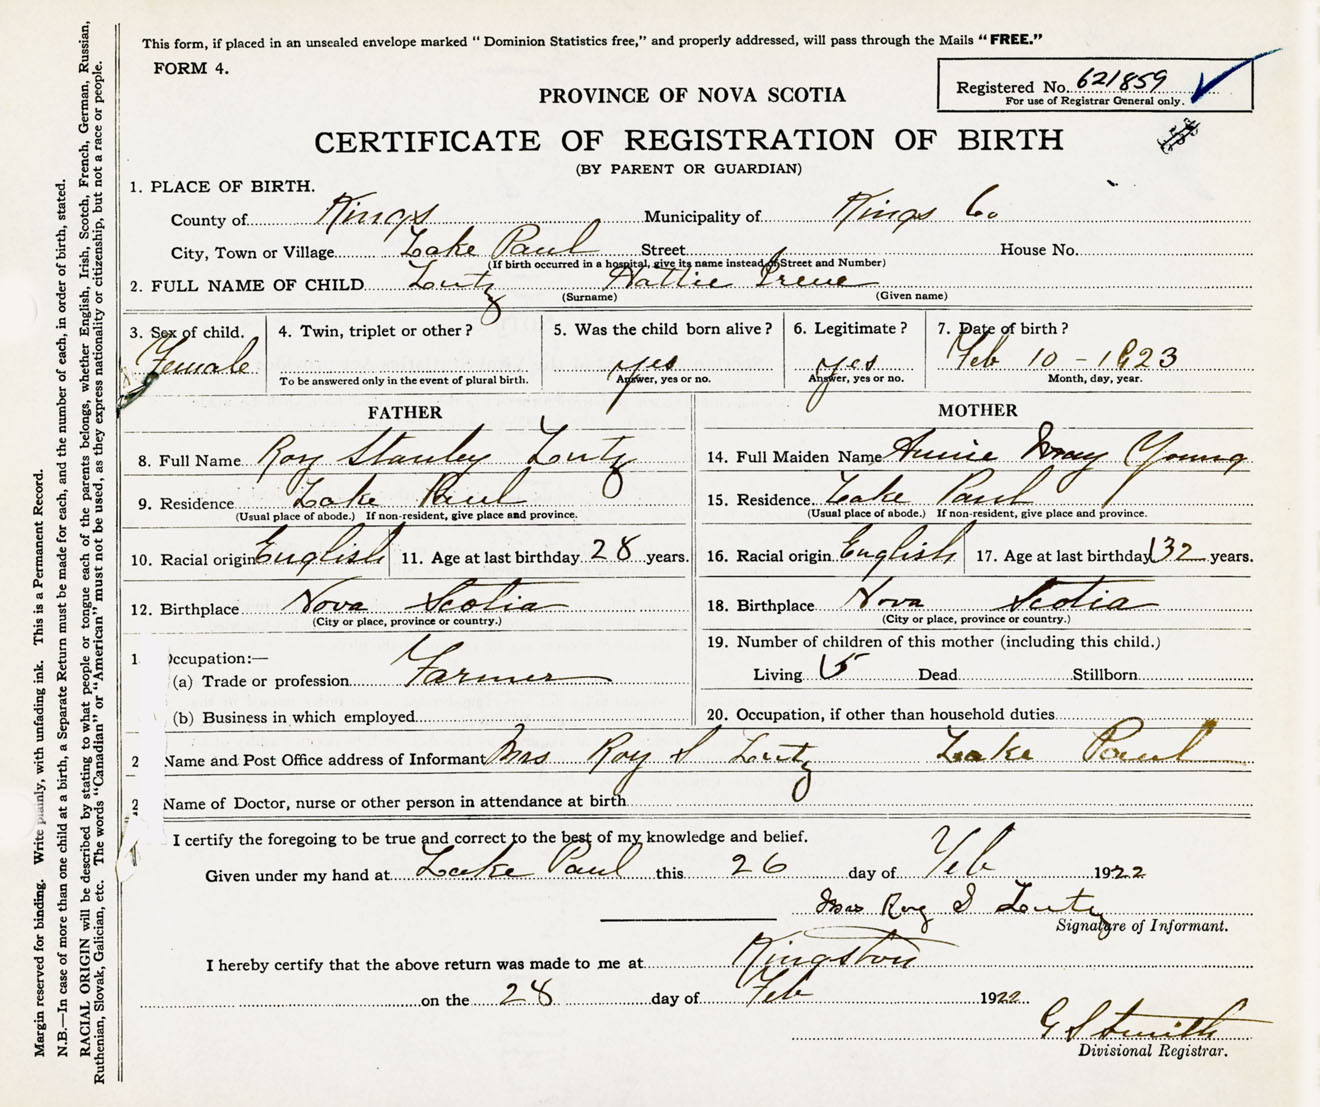 This form, if placed in an unsealed envelope marked “ Dominion Statistics free,” and properly addressed, will pass through the Mails “ FREE.”
FORM 4.
Registered No. 621859
For use of Registrar General only.
PROVINCE OF NOVA SCOTIA
CERTIFICATE OF REGISTRATION OF BIRTH
(BY PARENT OR GUARDIAN)
1. PLACE OF BIRTH.
County of Kings Municipality of Kings Co
City, Town or Village Lake Paul Street House No.
(If birth occurred in a hospital, give its name instead of Street and Number)
2. FULL NAME OF CHILD Lutz Hattie Irene
(Surname) (Given name)
3. Sex of child. 4. Twin, triplet or other ? 5. Was the child born alive ? 6. Legitimate ? 7. Date of birth ?
Female yes yes Feb 10 - 1923
To be answered only in the event of plural birth. Answer, yes or no. Answer, yes or no. Month, day, year.
FATHER MOTHER
8. Full Name Roy Stanley Lutz 14. Full Maiden Name Annie May Young
9. Residence Lake Paul 15. Residence Lake Paul
(Usual place of abode.) If non-resident, give place and province. (Usual place of abode.) If non-resident, give place and province.
10. Racial origin English 11. Age at last birthday 28 years. 16. Racial origin English 17. Age at last birthday 32 years.
12. Birthplace Nova Scotia 18. Birthplace Nova Scotia
(City or place, province or country.) (City or place, province or country.)
19. Number of children of this mother (including this child.)
1 Occupation:—
(a) Trade or profession Farmer Living 5 Dead Stillborn
(b) Business in which employed 20. Occupation, if other than household duties
2 Name and Post Office address of Informant Mrs Roy S Lutz Lake Paul
2 Name of Doctor, nurse or other person in attendance at birth
I certify the foregoing to be true and correct to the best of my knowledge and belief.
Given under my hand at Lake Paul this 26 day of Feb 1922
Mrs Roy S Lutz
Signature of Informant.
I hereby certify that the above return was made to me at Kingston
on the 28 day of Feb 1922
G S Smith
Divisional Registrar.
Margin reserved for binding. Write plainly, with unfading ink. This is a Permanent Record.
N.B.—In case of more than one child at a birth, a Separate Return must be made for each, and the number of each, in order of birth, stated.
RACIAL ORIGIN will be described by stating to what people or tongue each of the parents belongs, whether English, Irish, Scotch, French, German, Russian,
Ruthenian, Slovak, Galician, etc. The words “Canadian” or “American” must not be used, as they express nationality or citizenship, but not a race or people.